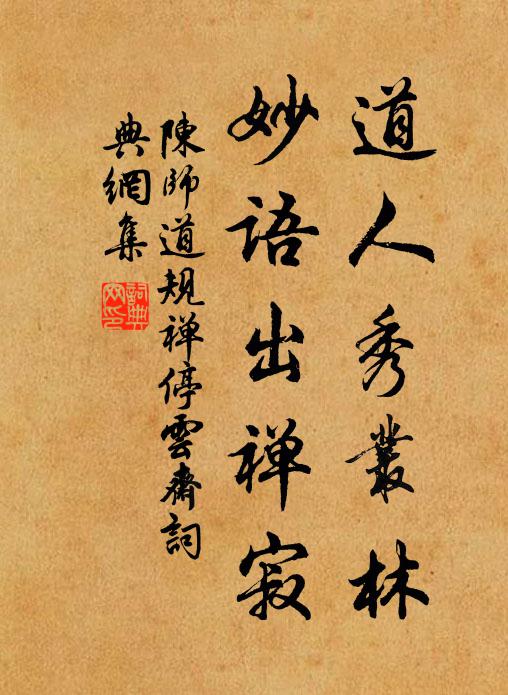 道人秀叢林
妙語出禅寂
陳師道規禅停雲齋詞
典網集
詞典
网印